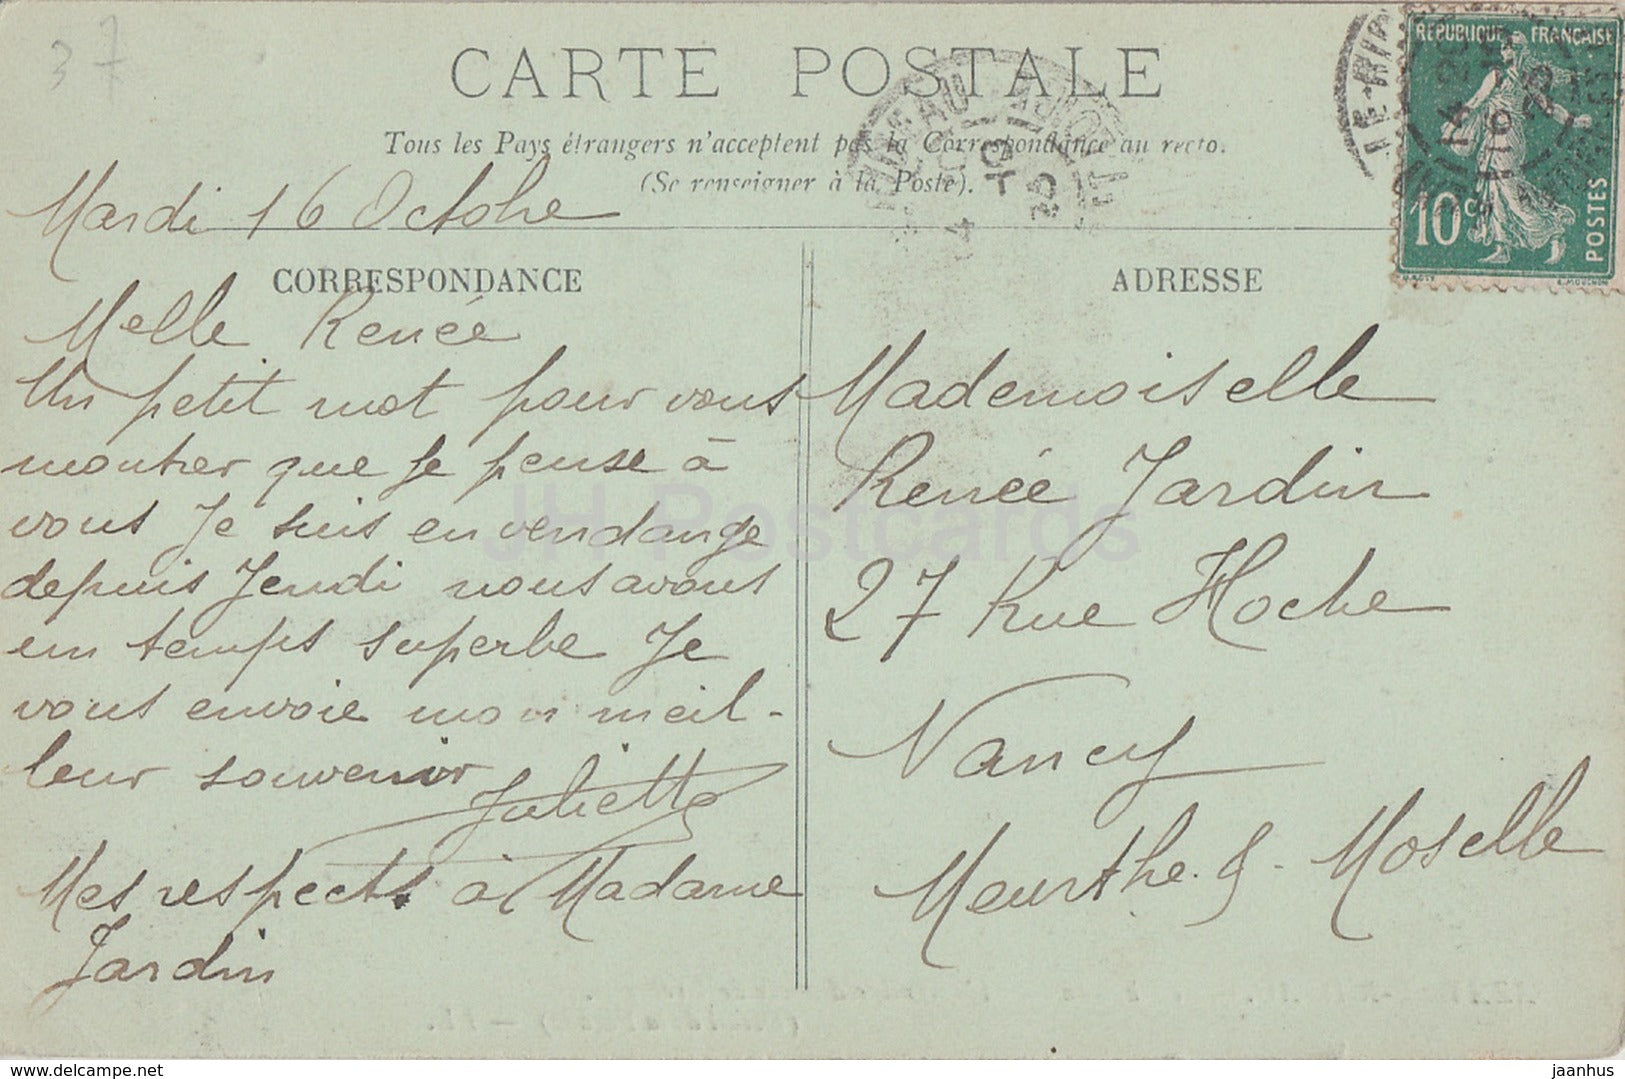 37
CARTE POSTALE
Tous les Pays étrangers n'acceptent pas la Correspondance au recto.
(Se renseigner à la Poste).
REPUBLIQUE FRANÇAISE
10c
POSTES
E. MOUCHON
Mardi 16 Octobre
CORRESPONDANCE
Melle Renée
Un petit mot pour vous
montrer que je pense à
vous Je suis en vendange
depuis Jeudi nous avons
un temps superbe Je
vous envoie mon meil-
leur souvenir
Juliette
Mes respects à Madame
Jardin
ADRESSE
Mademoiselle
Renée Jardin
27 Rue Hoche
Nancy
Meurthe & Moselle
JH Postcards
delcampe.net
jaanhus